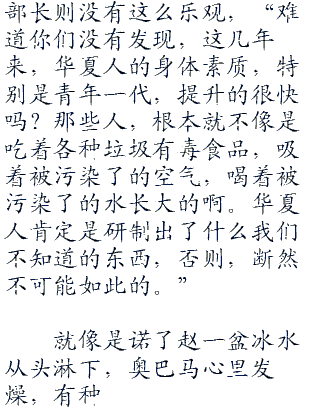 部长则没有这么乐观，“难
道你们没有发现，这几年
来，华夏人的身体素质，特
别是青年一代，提升的很快
吗？那些人，根本就不像是
吃着各种垃圾有毒食品，吸
着被污染了的空气，喝着被
污染了的水长大的啊。华夏
人肯定是研制出了什么我们
不知道的东西，否则，断然
不可能如此的。”
就像是诺了赵一盆冰水
从头淋下，奥巴马心里发
燥，有种